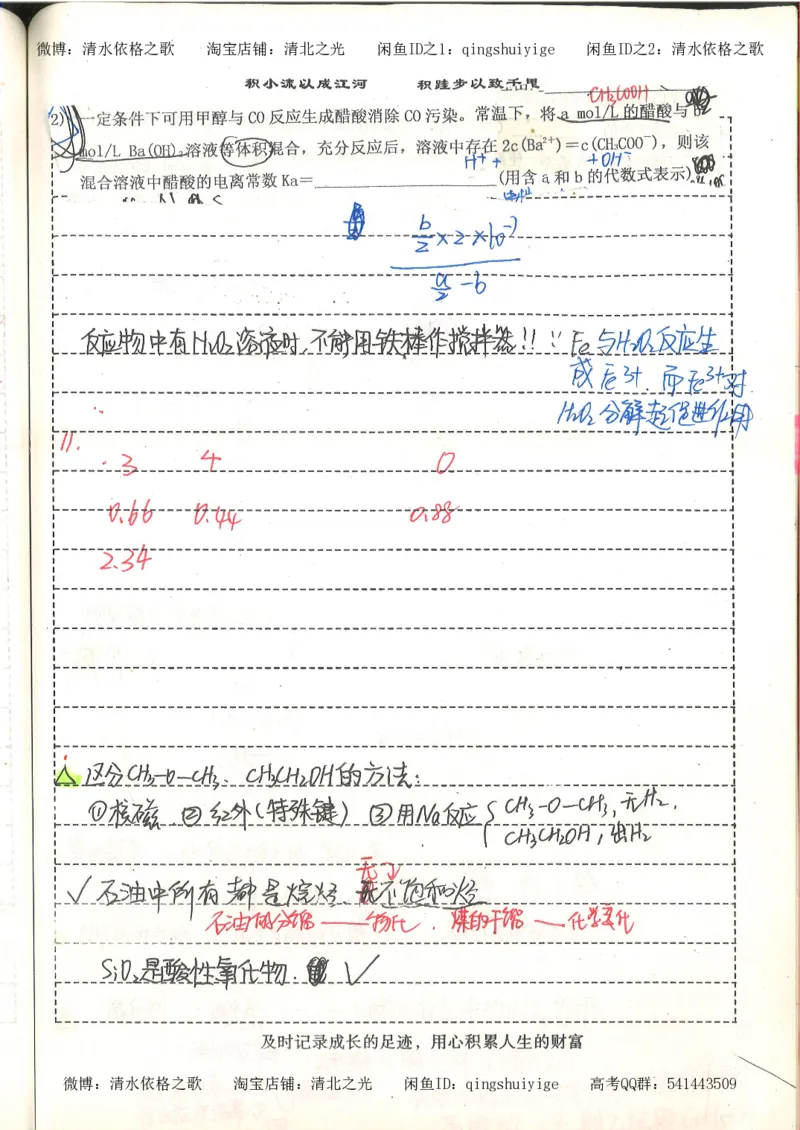 微博：清水依格之歌 淘宝店铺：清北之光 闲鱼ID之1：qingshuiyige 闲鱼ID之2：清水依格之歌
积小流以成江河 积跬步以致千里
CH₃COOH
2) 一定条件下可用甲醇与CO反应生成醋酸消除CO污染。常温下，将a mol/L的醋酸与b
mol/L Ba(OH)₂溶液等体积混合，充分反应后，溶液中存在2c(Ba²⁺)＝c(CH₃COO⁻)，则该
H⁺ + + OH⁻
混合溶液中醋酸的电离常数Ka＝____(用含a和b的代数式表示)。
b/2 × 2 × 10⁻⁷
a/2 - b
反应物中有H₂O₂溶液时，不能用铁棒作搅拌器!! ∵ Fe与H₂O₂反应生
成Fe³⁺，而Fe³⁺对
H₂O₂分解起促进作用
11.
3 4 0
0.66 0.44 0.88
2.34
△ 区分CH₃-O-CH₃、CH₃CH₂OH的方法：
①核磁 ②红外(特殊键) ③用Na反应 { CH₃-O-CH₃，无H₂，
CH₃CH₂OH，出H₂
无
√ 石油中所有都是烷烃、不饱和烃
石油的分馏——物化，煤的干馏——化学变化
SiO₂是酸性氧化物. √
及时记录成长的足迹，用心积累人生的财富
微博：清水依格之歌 淘宝店铺：清北之光 闲鱼ID：qingshuiyige 高考QQ群：541443509